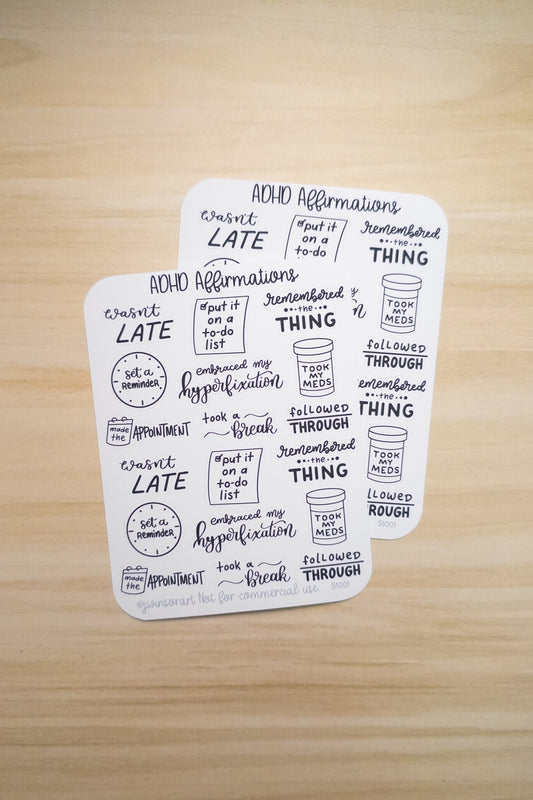 ADHD Affirmations
wasn't
LATE
put it
on a
to-do
remembered
the
THING
TOOK
MY
MEDS
followed
THROUGH
emembered
the
THING
TOOK
MY
MEDS
llowed
ROUGH
S1001
ADHD Affirmations
wasn't
LATE
put it
on a
to-do
list
remembered
the
THING
set a
REMINDER
embraced my
hyperfixation
TOOK
MY
MEDS
made
the
APPOINTMENT
took a
break
followed
THROUGH
wasn't
LATE
put it
on a
to-do
list
remembered
the
THING
set a
REMINDER
embraced my
hyperfixation
TOOK
MY
MEDS
made
the
APPOINTMENT
took a
break
followed
THROUGH
@jwinsorart Not for commercial use. S1001